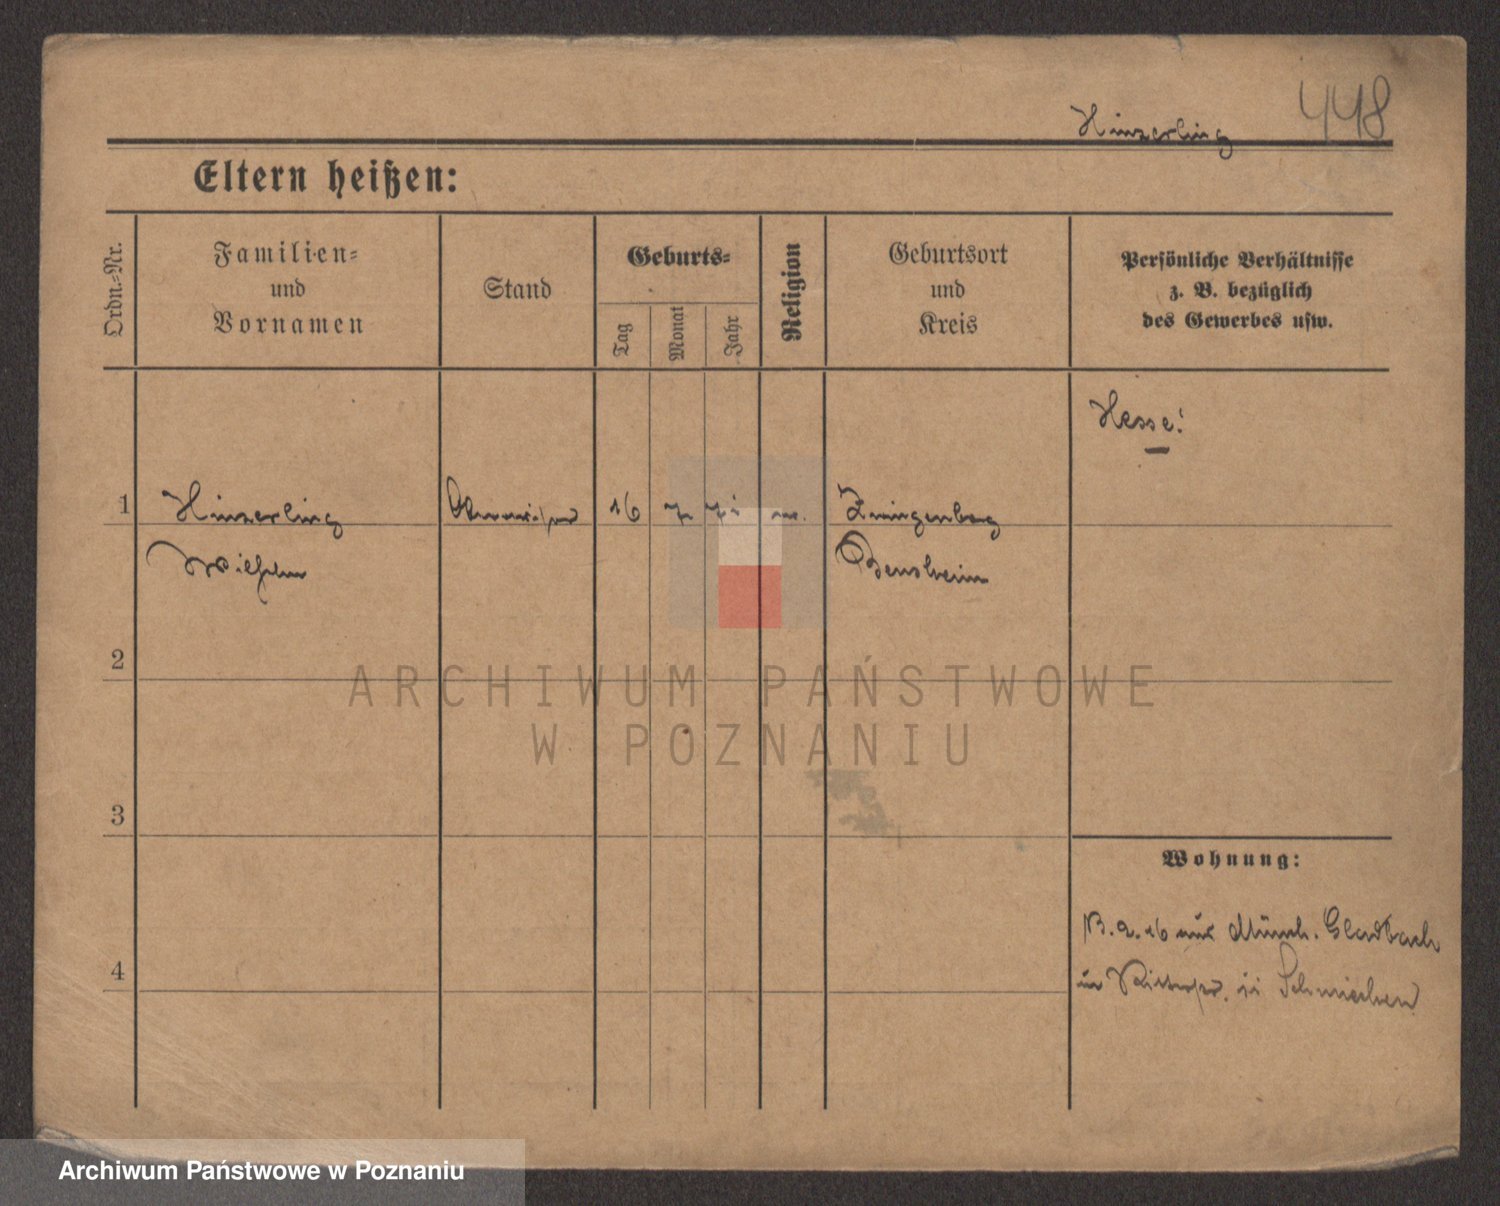 448
Hinzerling
Eltern heißen:
Ordn.-Nr.
Familien-
und
Vornamen
Stand
Geburts-
Tag
Monat
Jahr
Religion
Geburtsort
und
Kreis
Persönliche Verhältnisse
z. B. bezüglich
des Gewerbes usw.
Hesse!
1 Hinzerling 16 7 71 Zwingenberg
Wilhelm Bensheim
2
ARCHIWUM PAŃSTWOWE
W POZNANIU
3
Wohnung:
16 aus Münch. Gladbach
4
in 11 Schmieden
Archiwum Państwowe w Poznaniu